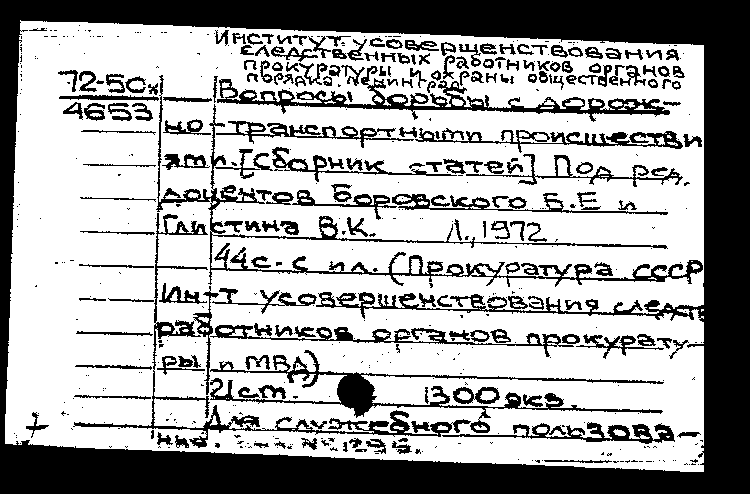 Институт усовершенствования
следственных работников органов
прокуратуры и охраны общественного
порядка. Ленинград
72-50к
4653
Вопросы борьбы с дорож-
но-транспортными происшестви
ями. [Сборник статей] Под ред.
доцентов Боровского Б.Е и
Глистина В.К. Л., 1972
44с. с ил. (Прокуратура СССР
Ин-т усовершенствования следств
работников органов прокурату-
ры и МВД)
21ст. 1300 экз.
Для служебного пользова-
ния.